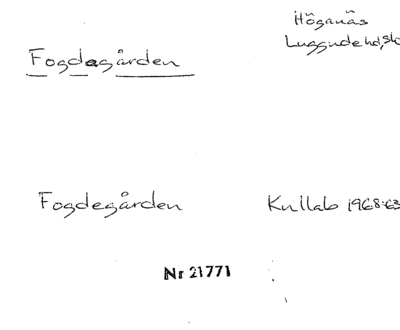 Höganäs
Luggude hd, Sk
Fogdegården
Fogdegården Kullab 1968:63
Nr 21771